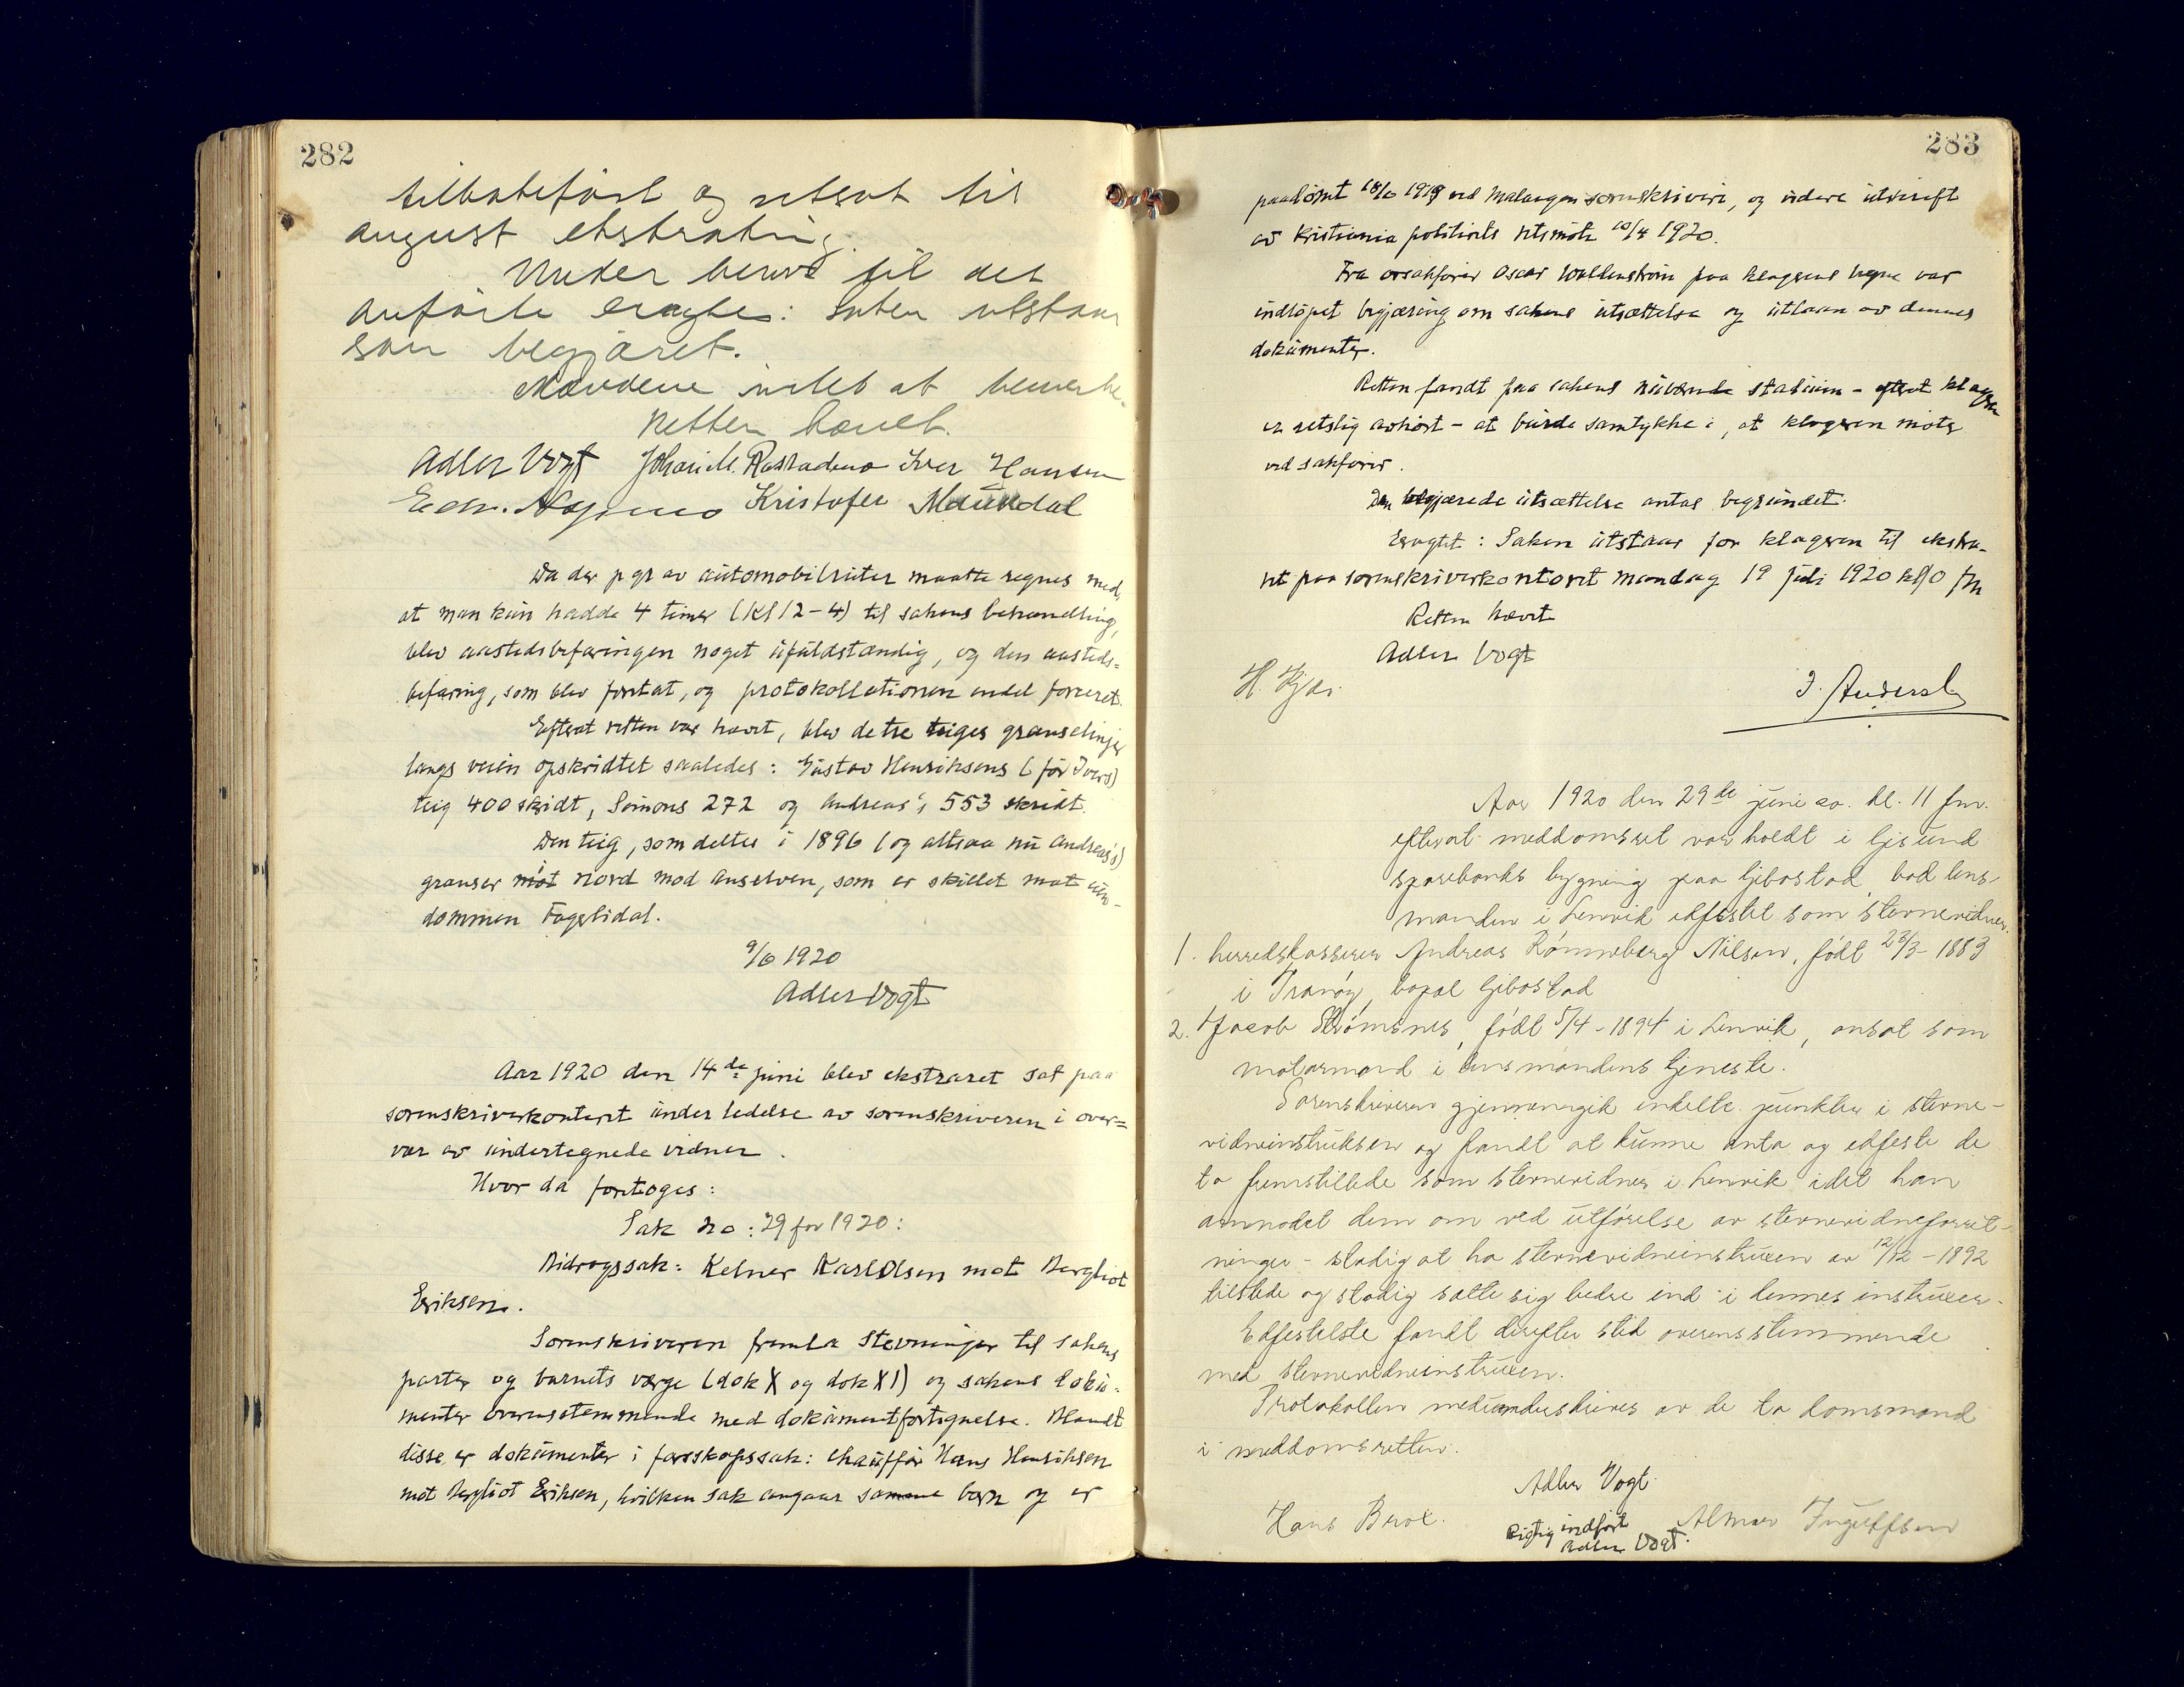 282
tilbakeført og utsat til
august ekstrating.
Under henv til det
anførte eragtes: Saken utstaar
som begjæret.
Mændene intet at bemerke.
Retten hævet.
Adler Vogt Johan M. Iver Hansen
Kristofer Maukdal
Da der p gr av automobilruter maatte regnes med,
at man kun hadde 4 timer (Kl 12-4) til sakens behandling,
blev aastedsbefaringen noget ufuldstændig, og den aasteds-
befaring, som blev foretat, og protokollationen endel forceret.
Efterat retten var hævet, blev de tre teiges grænselinjer
langs veien opskridtet saaledes: Gustav Henriksens (før Ivers)
teig 400 skridt, Simons 272 og Andreas's 553 skridt.
Den teig, som deltes i 1896 (og altsaa nu Andreas's)
grænser mot nord mod Anselven, som er skillet mot eien-
dommen Fagerlidal.
9/6 1920
Adler Vogt
Aar 1920 den 14de juni blev ekstraret sat paa
sorenskriverkontoret under ledelse av sorenskriveren i over-
vær av undertegnede vidner.
Hvor da foretoges:
Sak no: 29 for 1920:
Bidragssak: Kelner Karl Olsen mot Bergliot
Eriksen.
Sorenskriveren fremla stevninger til sakens
parter og barnets værge (dok X og dok XI) og sakens doku-
menter overensstemmende med dokumentfortegnelse. Blandt
disse er dokumenter i farsskapssak: chauffør Hans Henriksen
mot Bergliot Eriksen, hvilken sak angaar samme barn og er
283
paadømt 18/6 1919 ved Malangen sorenskriveri, og videre utskrift
av Kristiania politirets retsmøte 20/4 1920.
Fra orsakfører Oscar Wollenstrøm paa klagerens vegne var
indløpet begjæring om sakens utsættelse og utlaan av dennes
dokumenter.
Retten fandt paa sakens nuværende stadium - efterat klageren
er retslig avhørt - at burde samtykke i, at klageren møter
ved sakfører.
Den begjærede utsættelse antas begrundet.
Eragtet: Saken utstaar for klageren til ekstra-
ret paa sorenskriverkontoret mandag 19 juli 1920 kl 10 fm
Retten hævet
Adler Vogt
H. J.
Aar 1920 den 29de juni ca. kl. 11 fm.
efterat meddomsret var holdt i Gisund
sparebanks bygning paa Gibostad, bad lens-
manden i Lenvik edfæstet som stevnevidner.
1. herredskasserer Andreas Rønneberg Nilsen, født 23/3-1883
i Tranøy, bopæl Gibostad
2. Jacob Strømsnes, født 5/4-1894 i Lenvik, ansat som
motormand i lensmandens tjeneste.
Sorenskriveren gjennemgik enkelte punkter i stevne-
vidneinstruksen og fandt at kunne anta og edfæste de
to fremstillede som stevnevidner i Lenvik idet han
anmodet dem om ved utførelse av stevnevidneforret-
ninger - stadig at ha stevnevidneinstruxen av 12/12-1892
tilstede og stadig sætte sig bedre ind i dennes instruxer.
Edfæstelse fandt derefter sted overensstemmende
med stevnevidneinstruxen.
Protokollen medunderskrives av de to domsmænd
i meddomsretten.
Adler Vogt.
Hans Brox. Almar Ingulfsen
Rigtig indført
Adler Vogt.